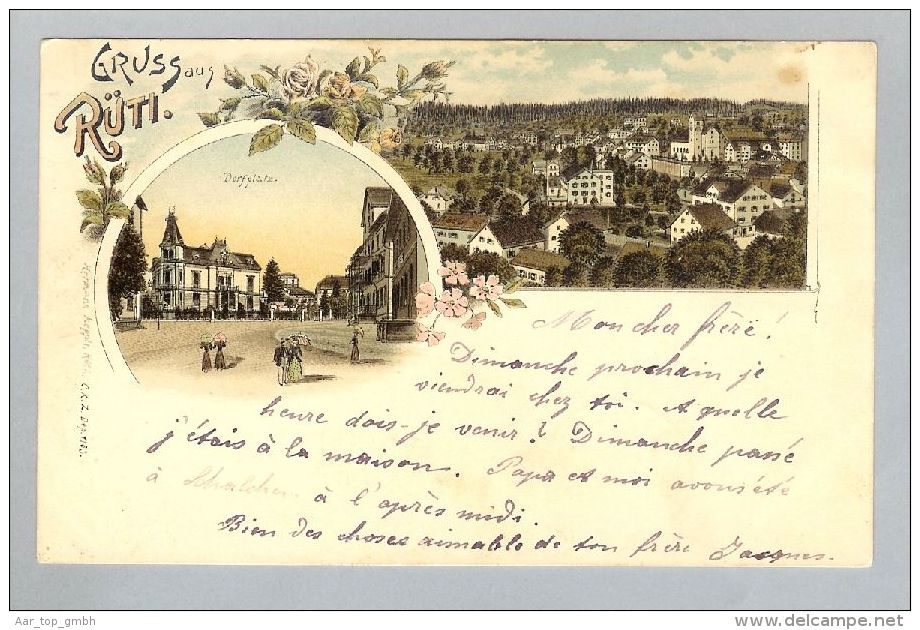 GRUSS aus
RÜTI.
Dorfplatz.
Mon cher frère!
Dimanche prochain je
viendrai chez toi. A quelle
heure dois-je venir? Dimanche passé
j'étais à la maison. Papa et moi avons été
à l'après midi.
Bien des choses aimable de ton frère Jacques.
Aar_top_gmbh
www.delcampe.net